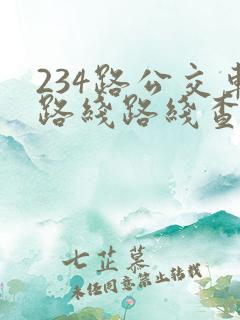 234路公交车
路线路线查
七芷慕
未经同意禁止转载